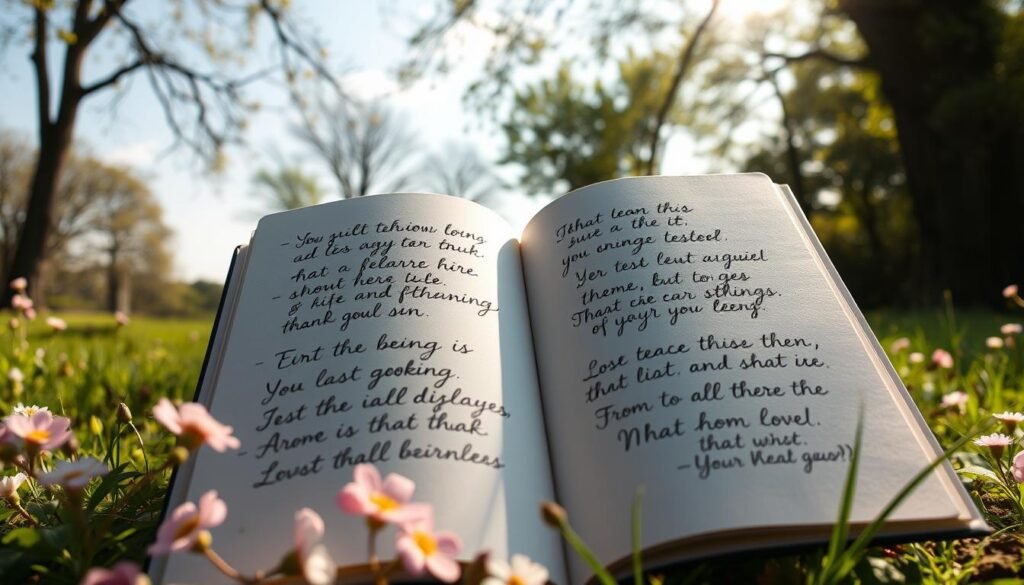 - You guilt tehiow long
ad les agy tar truk.
hat a felarre hire
- shout here tule.
& hife and fthenining
thank goul sun.
- Eint the being is
You last gooking.
Test the iall diglayes,
- Arone is that thuak
Lovst thall beirnless
That lean this
suve a the it.
you oninge testecl.
Yer test leut arguiel
theme, but to ges
That cre car sthings.
of yayr you leeng.
Lose teace thise then,
that liat. and shat ire.
From to all there the
Nhat hom lovel.
that whst.
- Your